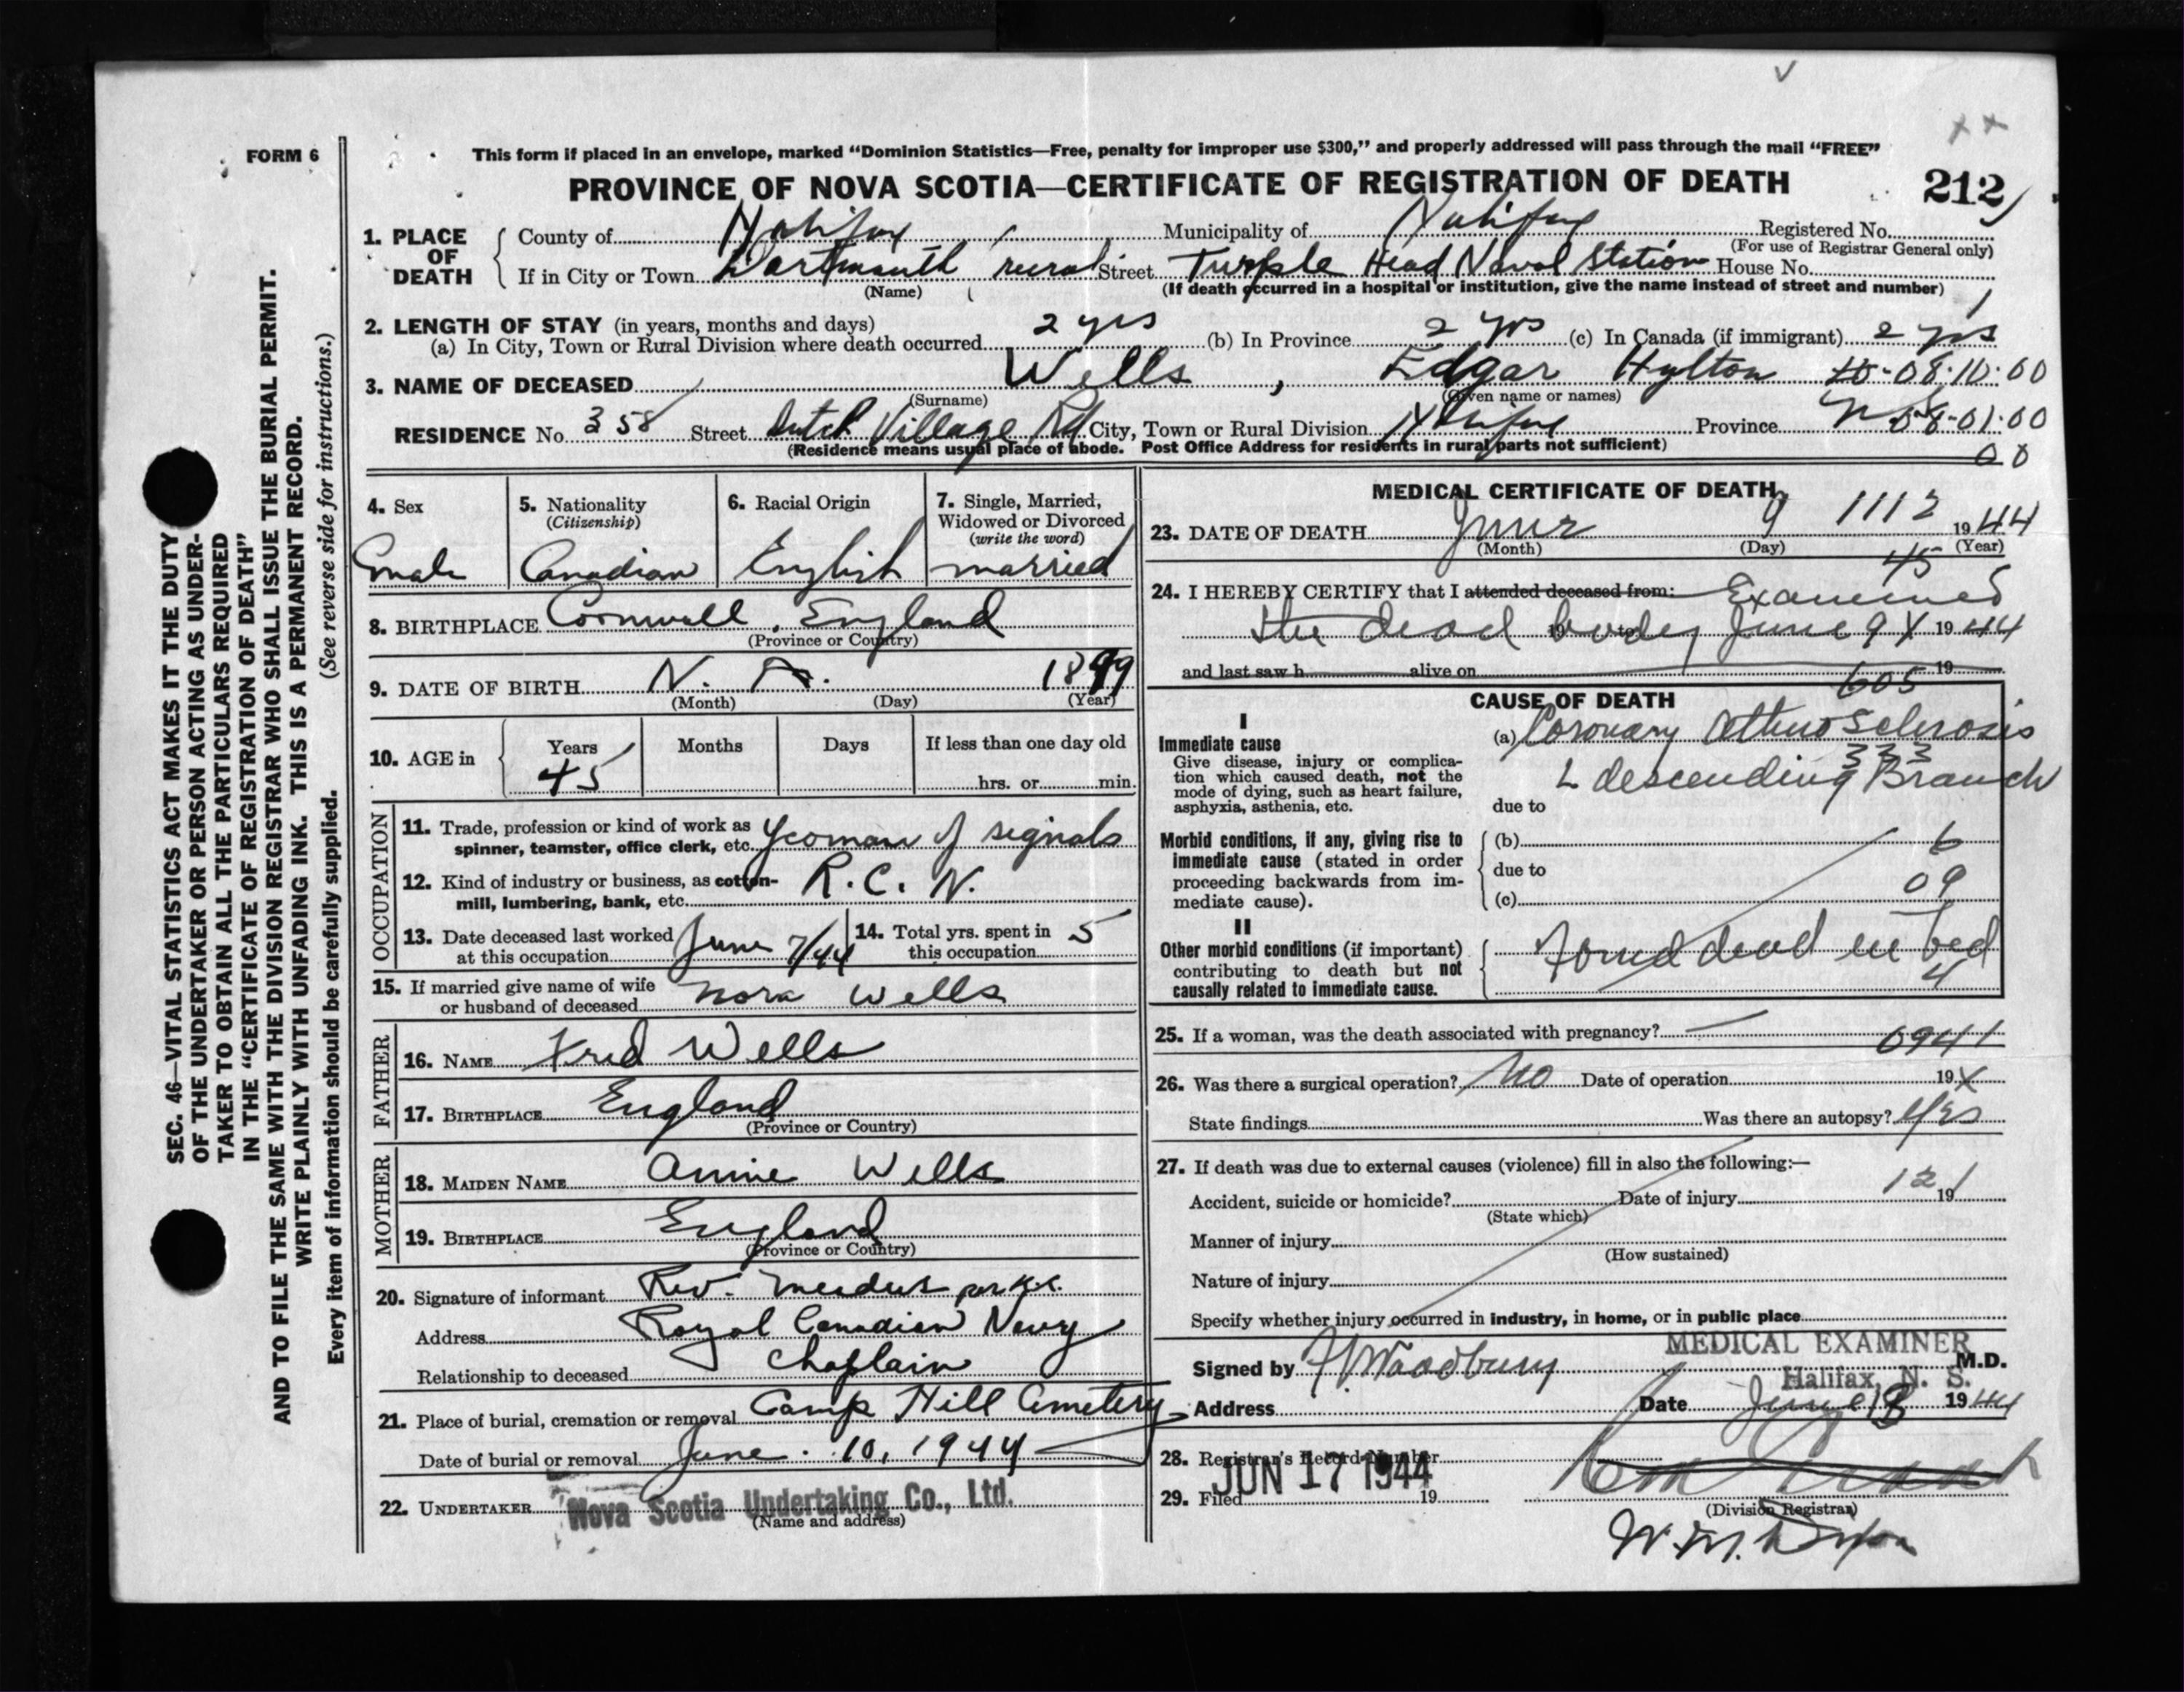 FORM 6
This form if placed in an envelope, marked “Dominion Statistics—Free, penalty for improper use $300,” and properly addressed will pass through the mail “FREE”
PROVINCE OF NOVA SCOTIA—CERTIFICATE OF REGISTRATION OF DEATH 212
1. PLACE OF DEATH
County of Halifax Municipality of Halifax Registered No.
(For use of Registrar General only)
If in City or Town Dartmouth rural Street Turple Head Naval Station House No.
(Name) (If death occurred in a hospital or institution, give the name instead of street and number)
2. LENGTH OF STAY (in years, months and days)
(a) In City, Town or Rural Division where death occurred 2 yrs (b) In Province 2 yrs (c) In Canada (if immigrant) 2 yrs
3. NAME OF DECEASED Wells, Edgar Hylton 08.10.00
(Surname) (Given name or names)
RESIDENCE No. 358 Street Dutch Village Rd City, Town or Rural Division Halifax Province N S 08.01.00
(Residence means usual place of abode. Post Office Address for residents in rural parts not sufficient)
00
4. Sex
male
5. Nationality
(Citizenship)
Canadian
6. Racial Origin
English
7. Single, Married, Widowed or Divorced
(write the word)
married
8. BIRTHPLACE Cornwall, England
(Province or Country)
9. DATE OF BIRTH N. A. 1899
(Month) (Day) (Year)
10. AGE in
Years Months Days If less than one day old
45 hrs. or min.
OCCUPATION
11. Trade, profession or kind of work as
spinner, teamster, office clerk, etc. Yeoman of signals
12. Kind of industry or business, as cotton-
mill, lumbering, bank, etc. R. C. N.
13. Date deceased last worked
at this occupation June 7/44
14. Total yrs. spent in
this occupation 5
15. If married give name of wife
or husband of deceased Nora Wells
FATHER
16. NAME Fred Wells
17. BIRTHPLACE England
(Province or Country)
MOTHER
18. MAIDEN NAME Annie Wells
19. BIRTHPLACE England
(Province or Country)
20. Signature of informant Rev.
Address Royal Canadian Navy
Relationship to deceased Chaplain
21. Place of burial, cremation or removal Camp Hill Cemetery
Date of burial or removal June 10, 1944
22. UNDERTAKER Nova Scotia Undertaking Co., Ltd.
(Name and address)
MEDICAL CERTIFICATE OF DEATH
23. DATE OF DEATH June 9 1112 1944
(Month) (Day) (Year)
45
24. I HEREBY CERTIFY that I attended deceased from: Examined
the dead body June 9 X 1944
and last saw h alive on 19
605
CAUSE OF DEATH
I
Immediate cause
Give disease, injury or complica-
tion which caused death, not the
mode of dying, such as heart failure,
asphyxia, asthenia, etc.
(a) Coronary Athero Sclerosis
333
L descending Branch
due to
Morbid conditions, if any, giving rise to
immediate cause (stated in order
proceeding backwards from im-
mediate cause).
(b) 6
due to
09
(c)
II
Other morbid conditions (if important)
contributing to death but not
causally related to immediate cause.
Found dead in bed
4
25. If a woman, was the death associated with pregnancy? —
6941
26. Was there a surgical operation? No Date of operation 19 X
State findings Was there an autopsy? Yes
27. If death was due to external causes (violence) fill in also the following:—
121
Accident, suicide or homicide? Date of injury 19
(State which)
Manner of injury
(How sustained)
Nature of injury
Specify whether injury occurred in industry, in home, or in public place
Signed by Woodbury M.D.
MEDICAL EXAMINER
Halifax, N. S.
Address Date June 1944
28. Registrar's Record Number
29. Filed JUN 17 1944 19
(Division Registrar)
W. M.
SEC. 46—VITAL STATISTICS ACT MAKES IT THE DUTY
OF THE UNDERTAKER OR PERSON ACTING AS UNDER-
TAKER TO OBTAIN ALL THE PARTICULARS REQUIRED
IN THE “CERTIFICATE OF REGISTRATION OF DEATH”
AND TO FILE THE SAME WITH THE DIVISION REGISTRAR WHO SHALL ISSUE THE BURIAL PERMIT.
WRITE PLAINLY WITH UNFADING INK. THIS IS A PERMANENT RECORD.
Every item of information should be carefully supplied. (See reverse side for instructions.)